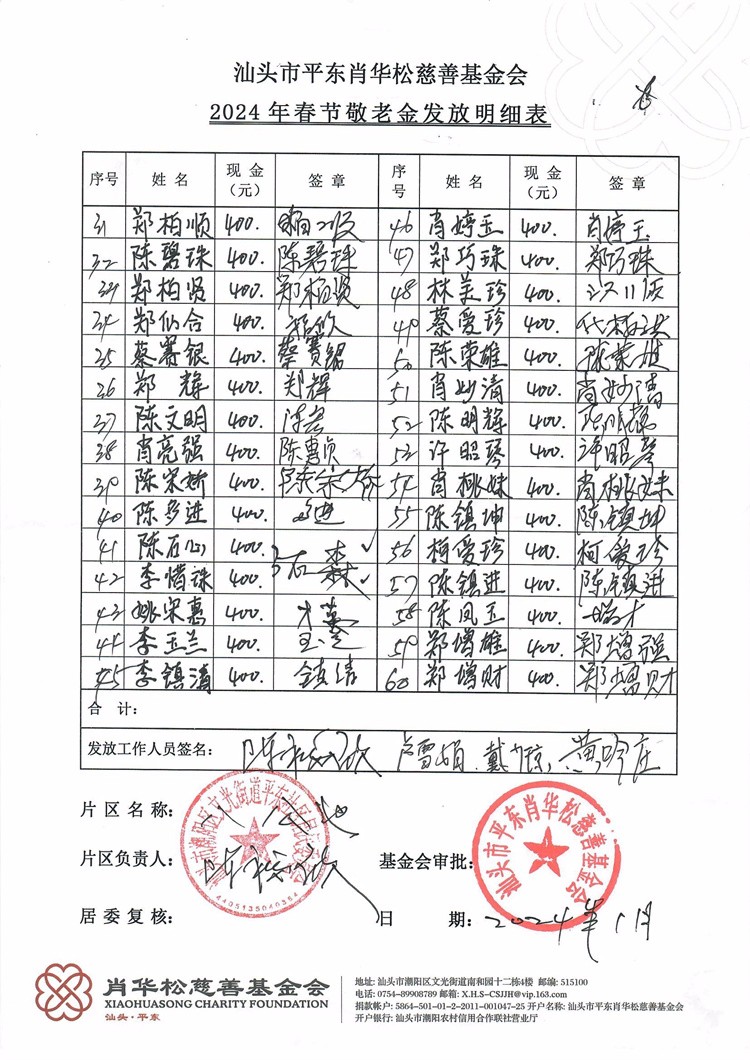 汕头市平东肖华松慈善基金会
2024年春节敬老金发放明细表
序号 姓名 现金(元) 签章 序号 姓名 现金(元) 签章
31 郑柏顺 400. 46 肖婷玉 400. 肖婷玉
32 陈碧珠 400. 陈碧珠 47 郑巧珠 400. 郑巧珠
33 郑柏贤 400. 郑柏贤 48 林美珍 400.
34 郑仙合 400. 49 蔡爱珍 400.
35 蔡赛银 400. 蔡赛银 50 陈荣雄 400. 陈荣雄
36 郑辉 400. 郑辉 51 肖妙清 400. 肖妙清
37 陈文明 400. 52 陈明辉 400. 陈明辉
38 肖亮强 400. 陈惠贞 53 许昭琴 400. 许昭琴
39 陈宋娇 400. 54 肖桃妹 400. 肖桃妹
40 陈多进 400. 多进 55 陈镇坤 400. 陈镇坤
41 陈石心 400. 56 柯爱珍 400. 柯爱珍
42 李惜珠 400. 57 陈镇进 400. 陈镇进
43 姚宋惠 400. 58 陈凤玉 400.
44 李玉兰 400. 玉兰 59 郑增雄 400. 郑增强
45 李镇清 400. 镇清 60 郑增财 400. 郑增财
合计:
发放工作人员签名: 卢雪娟
片区名称:
片区负责人: 基金会审批:
汕头市平东肖华松慈善基金会
居委复核: 日期: 2024年1月
肖华松慈善基金会
XIAOHUASONG CHARITY FOUNDATION
汕头·平东
地址: 汕头市潮阳区文光街道南和园十二栋4楼 邮编: 515100
电话: 0754-89908789 邮箱: X.H.S-CSJJH@vip.163.com
捐款帐户: 5864-501-01-2-2011-001047-25 开户名称: 汕头市平东肖华松慈善基金会
开户银行: 汕头市潮阳农村信用合作联社营业厅